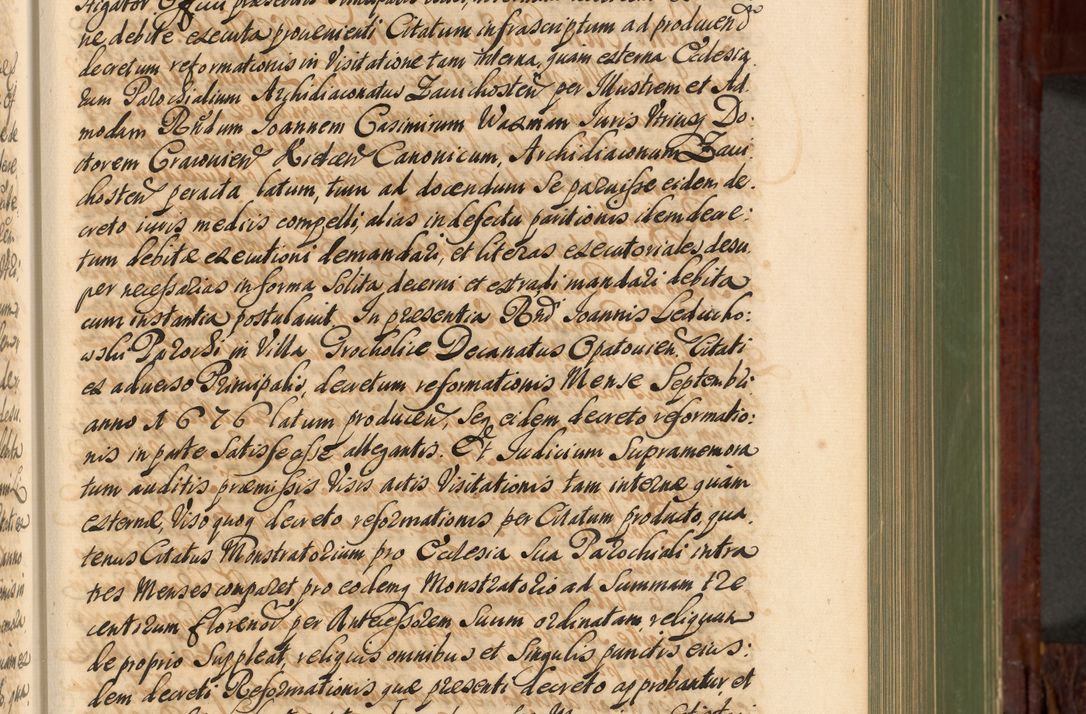 ne debite executa provenienti Citatum infrascriptum ad producend
decretum reformationis in Visitatione tam interna, quam externa Ecclesia
rum Parochialium Archidiaconatus Zavichosten per Illustrem et Ad
modum Rndum Joannem Casimirum Wazman Juris Utriusq Do:
ctorem Cracovien Kielcen Canonicum, Archidiaconum Zavi
chosten peracta latum, tum ad docendum Se paruisse eidem de:
creto iuris mediis compelli, alias in defectu paritionis idem decre:
tum debitæ executioni demandari, et literas executoriales desu
per necessarias in forma Solita decerni et extradi mandari debita
cum instantia postulavit. In præsentia Rnd Joannis Leducho:
wski Parochi in Villa Grocholice Decanatus Opatovien, Citati
ex adverso Principalis, decretum reformationis Mense Septembri
anno 1676 latum producen, Seq eidem decreto reformatio:
nis in parte Satisfecisse allegantis. Et Judicium Supramemora
tum auditis præmissis Visis actis Visitationis tam internæ quam
externæ, Visoquoq decreto reformationis per Citatum producto, qua
tenus Citatus Monstratorium pro Ecclesia Sua Parochiali intra
tres Menses comparet pro eodemq Monstratorio ad Summam tre
centorum florenor per Antecessorem Suum ordinatam reliquum
de proprio Suppleat, reliquis omnibus et Singulis punctis eius:
dem decreti Reformationis quæ præsenti decreto approbantur, et